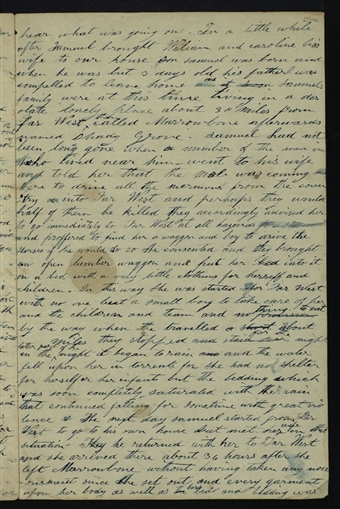 hear what was going on. In a little while
after Samuel brought William and caroline his
wife to our house Don Samuel was born and
when he was but 3 days old his father was
compelled to leave home Samuels
family were at this time living in a des
olate lonely place about 30 miles from
far West called Marrowbone afterwards
named Shady Grove. Samuel had not
been long gone when a number of the men
who lived near him went to his wife
and told her that the mob was coming
there to drive all the mormons from the coun
try into far West and perhaps they would
half of them be killed they accordingly advised her
to go immediately to Far West at all hazards
and proffered to find her a waggon and boy to drive the
horses if she would do so she consented and they brought
an open lumber waggon and put her bed into it
on a bed with a very little clothing for herself and
children. In this way she was started for Far West
with no one but a small boy to take care of her
and the children and team and nothing to eat
by the way when the travelled a about
miles they stopped and staid
in the night it began to rain and the water
fell upon her in torrents for she had not shelter
for herself or her infant but the bedding which
was soon completely saturated with the rain
that continued falling for sometime with great vi
olence. The next day samuel started from Far
West to go to his own house but met her in this
situation he returned with her to Far West
and she arrived there about 36 hours after she
left Marrowbone without having taken any nour
ishment since she set out and every garment
upon her body as well as the bed and bedding was